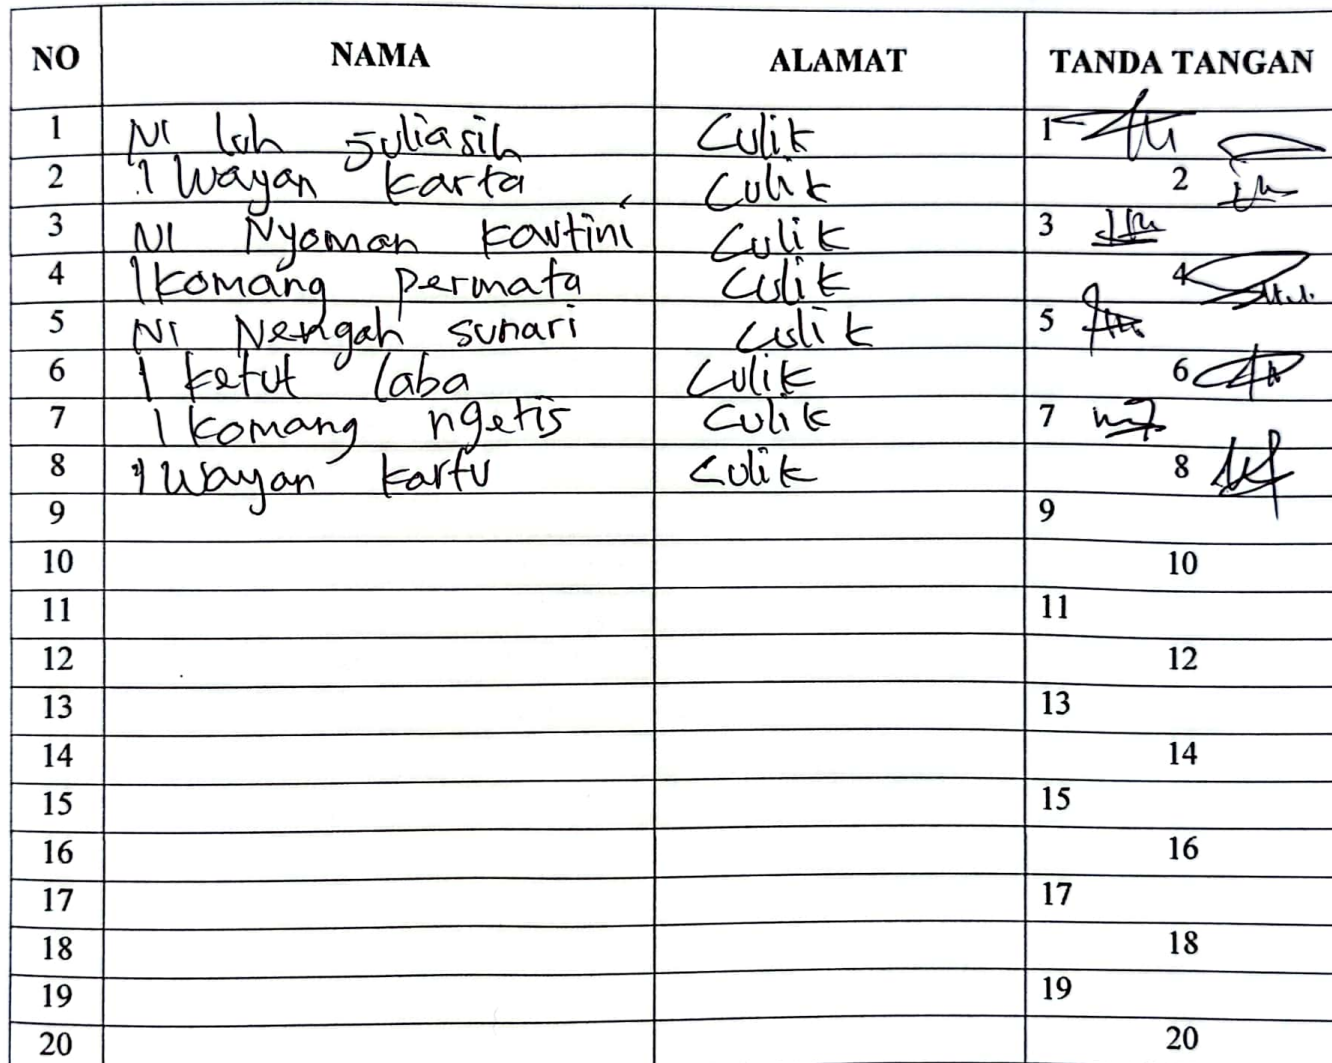 NO NAMA ALAMAT TANDA TANGAN
1 NI luh Juliasih Culik 1
2 I Wayan karta Culik 2
3 NI Nyoman kartini Culik 3
4 I komang permata Culik 4
5 NI Nengah sunari Culik 5
6 I ketut laba Culik 6
7 I komang ngetis Culik 7
8 I Wayan kartu Culik 8
9 9
10 10
11 11
12 12
13 13
14 14
15 15
16 16
17 17
18 18
19 19
20 20